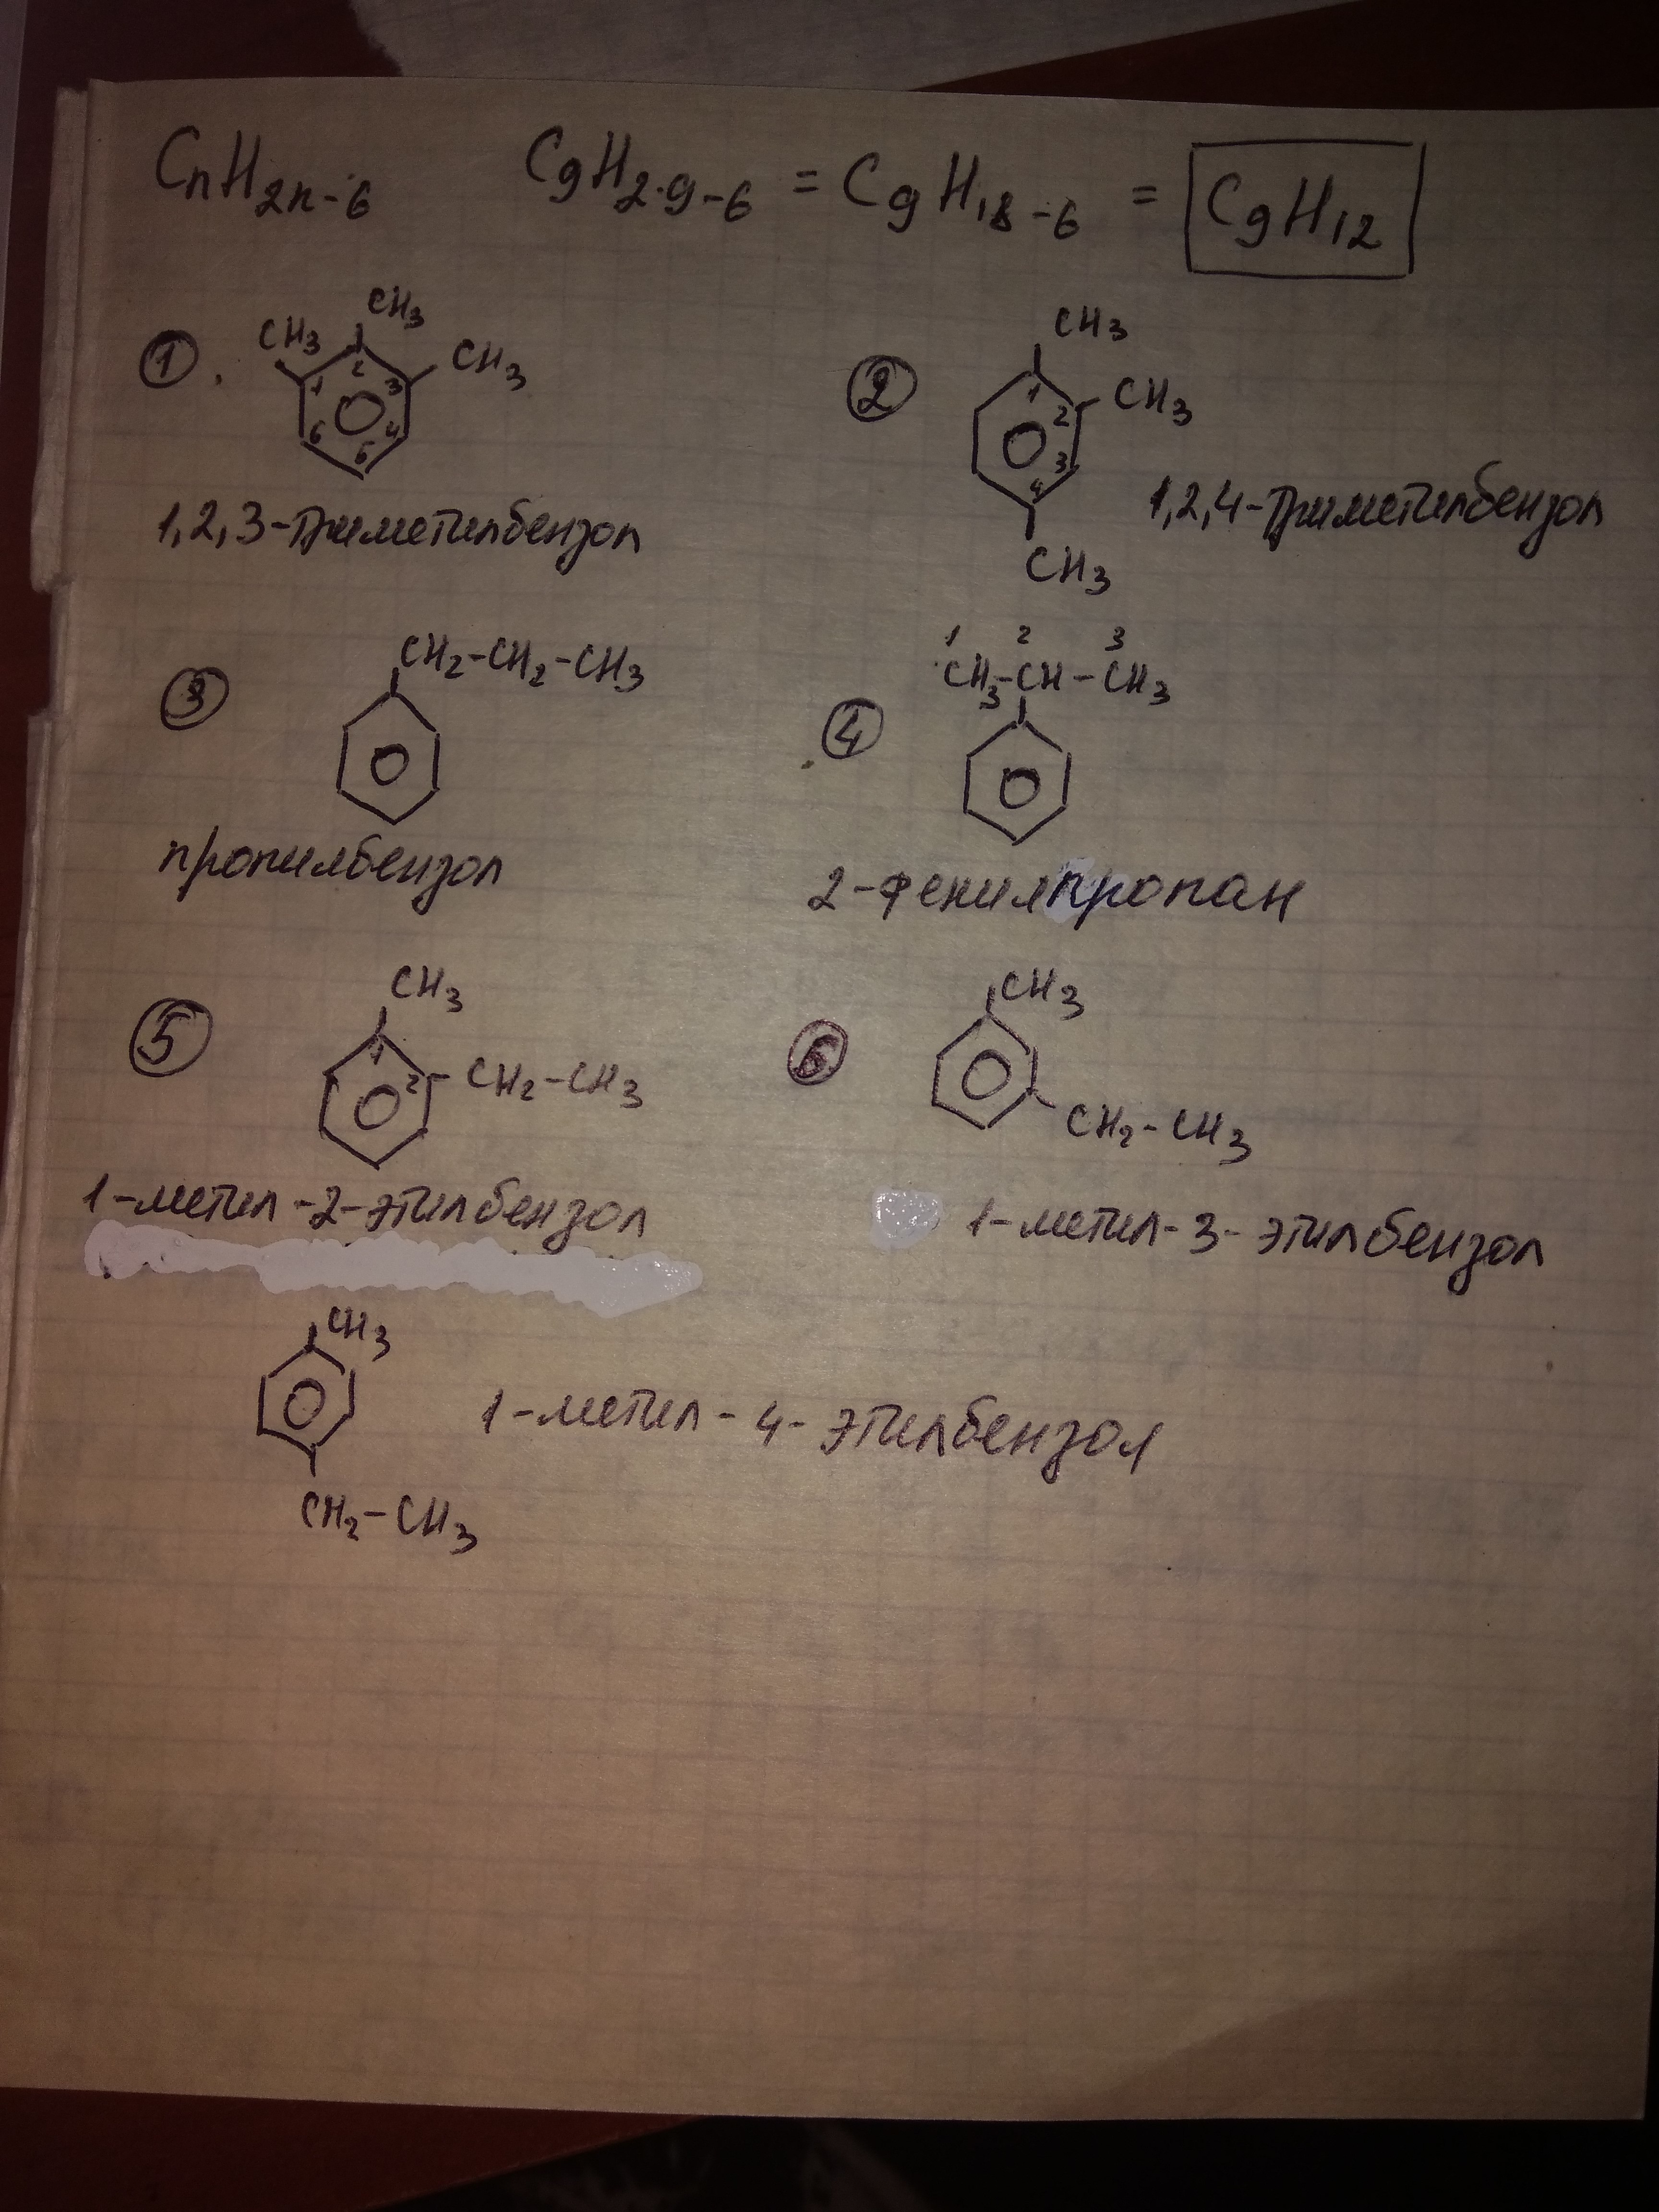 CnH2n-6 C9H2·9-6 = C9H18-6 = C9H12
CH3
CH3 CH3
1 2 3 4 5 6
① .
1,2,3-триметилбензол
②
CH3
CH3
1 2 3 4
CH3
1,2,4-триметилбензол
③
CH2-CH2-CH3
пропилбензол
④
1 2 3
CH3-CH-CH3
2-фенилпропан
⑤
CH3
1
2 CH2-CH3
1-метил-2-этилбензол
⑥
CH3
CH2-CH3
1-метил-3-этилбензол
CH3
1-метил-4-этилбензол
CH2-CH3